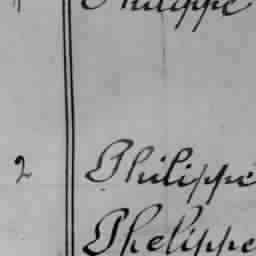 Philippe
2 Philippe
Phelippe